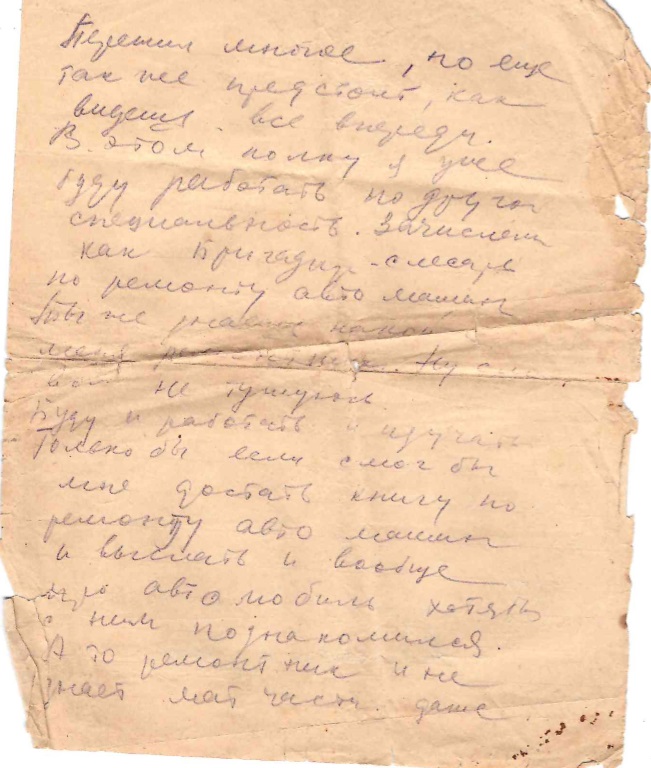 Пережил многое, но еще
так же предстоит, как
видешь все впереди.
В этом полку я уже
буду работать по другой
специальность. Зачислен
как Бригадир-слесарь
по ремонту авто машин
Ты же знаешь какой
меня
не тушуюсь
Буду и работать и изучать
Только бы если смог бы
мне достать книгу по
ремонту авто машин
и выслать и вообще
про автомобиль хотябы
с ним познакомился.
А то ремонтник и не
знает мат части даже